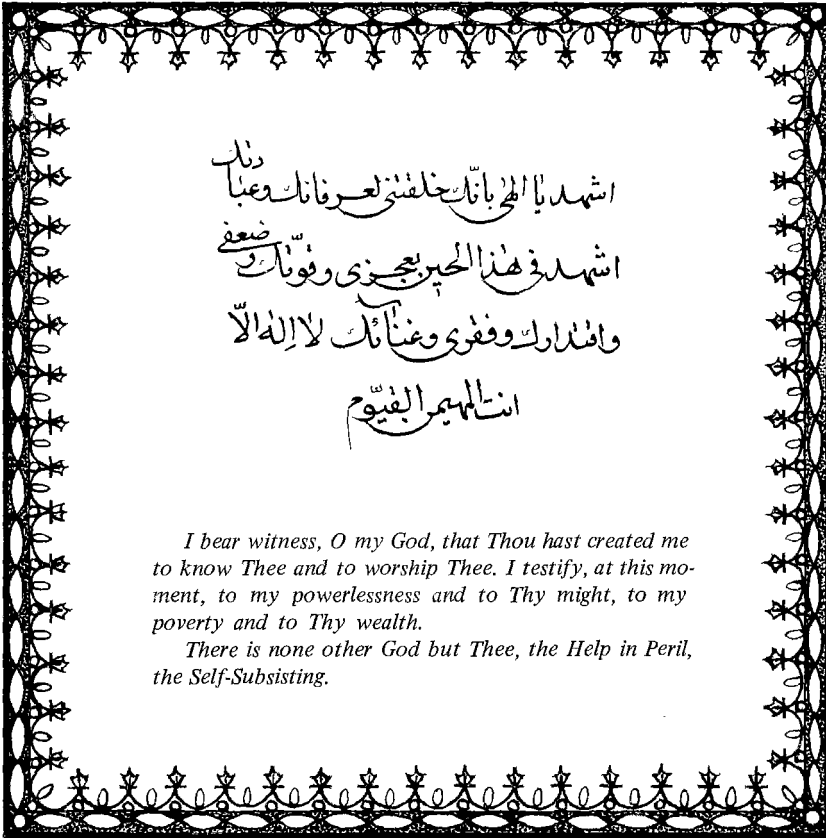 اشهد يا الهى بانّك خلقتنى لعرفانك وعبادتك
اشهد فى هذا الحين بعجزى وقوّتك وضعفى
واقتدارك وفقرى وغنائك لا اِله الّا
انت المهيمن القيّوم
I bear witness, O my God, that Thou hast created me
to know Thee and to worship Thee. I testify, at this mo-
ment, to my powerlessness and to Thy might, to my
poverty and to Thy wealth.
There is none other God but Thee, the Help in Peril,
the Self-Subsisting.